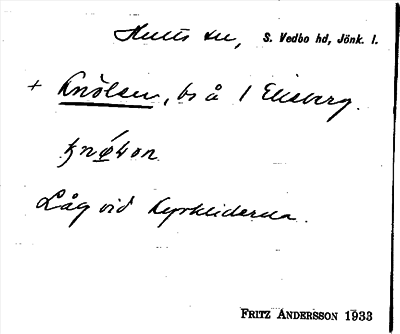 Hults sn, S. Vedbo hd, Jönk. l.
+ Knölen, bs å 1 Elisberg.
Låg vid Kyrkliderna.
FRITZ ANDERSSON 1933